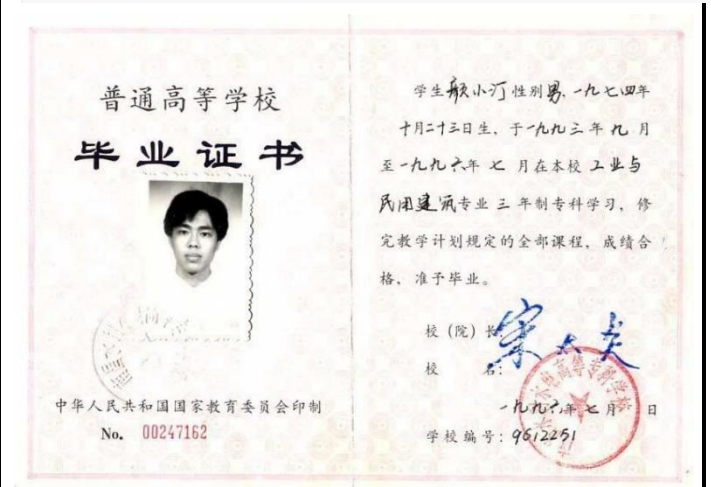 普通高等学校
毕业证书
中华人民共和国国家教育委员会印制
No. 00247162
学生颜小河性别男、一九七四年
十月二十三日生、于一九九三年九月
至一九九六年七月在本校工业与
民用建筑专业三年制专科学习，修
完教学计划规定的全部课程，成绩合
格，准予毕业。
校（院）长
校名：
一九九六年七月 日
学校编号：9612251
高等专科学校